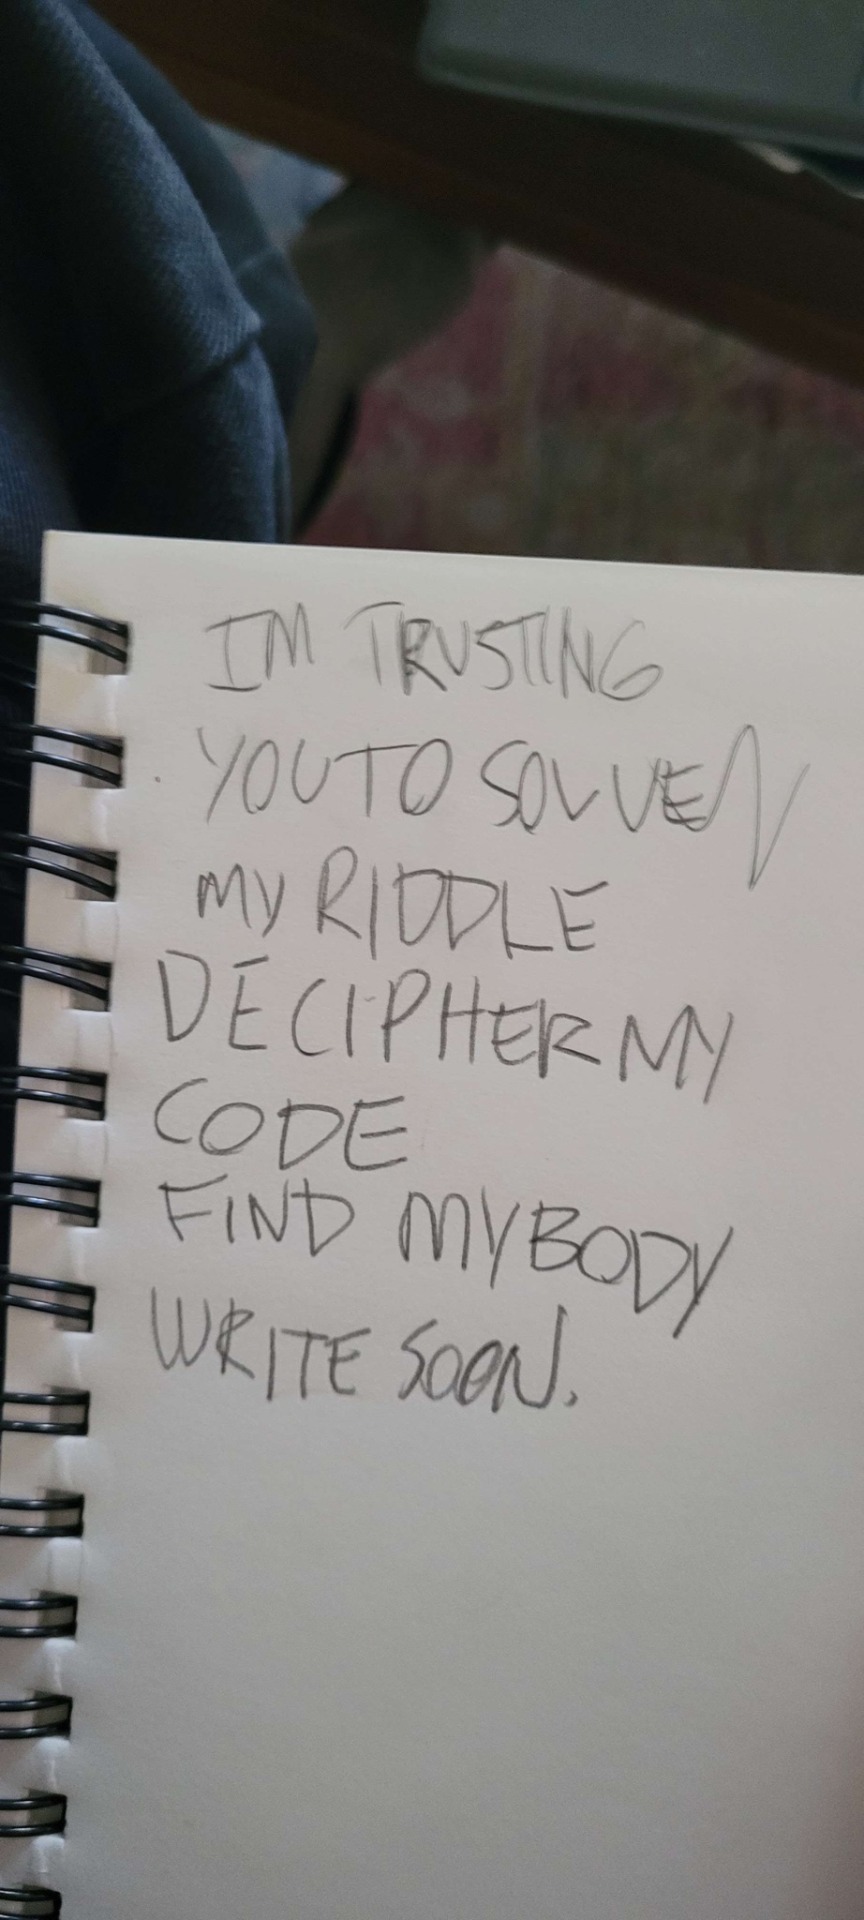 IM TRUSTING
YOU TO SOLVE
MY RIDDLE
DECIPHER MY
CODE
FIND MY BODY
WRITE SOON.